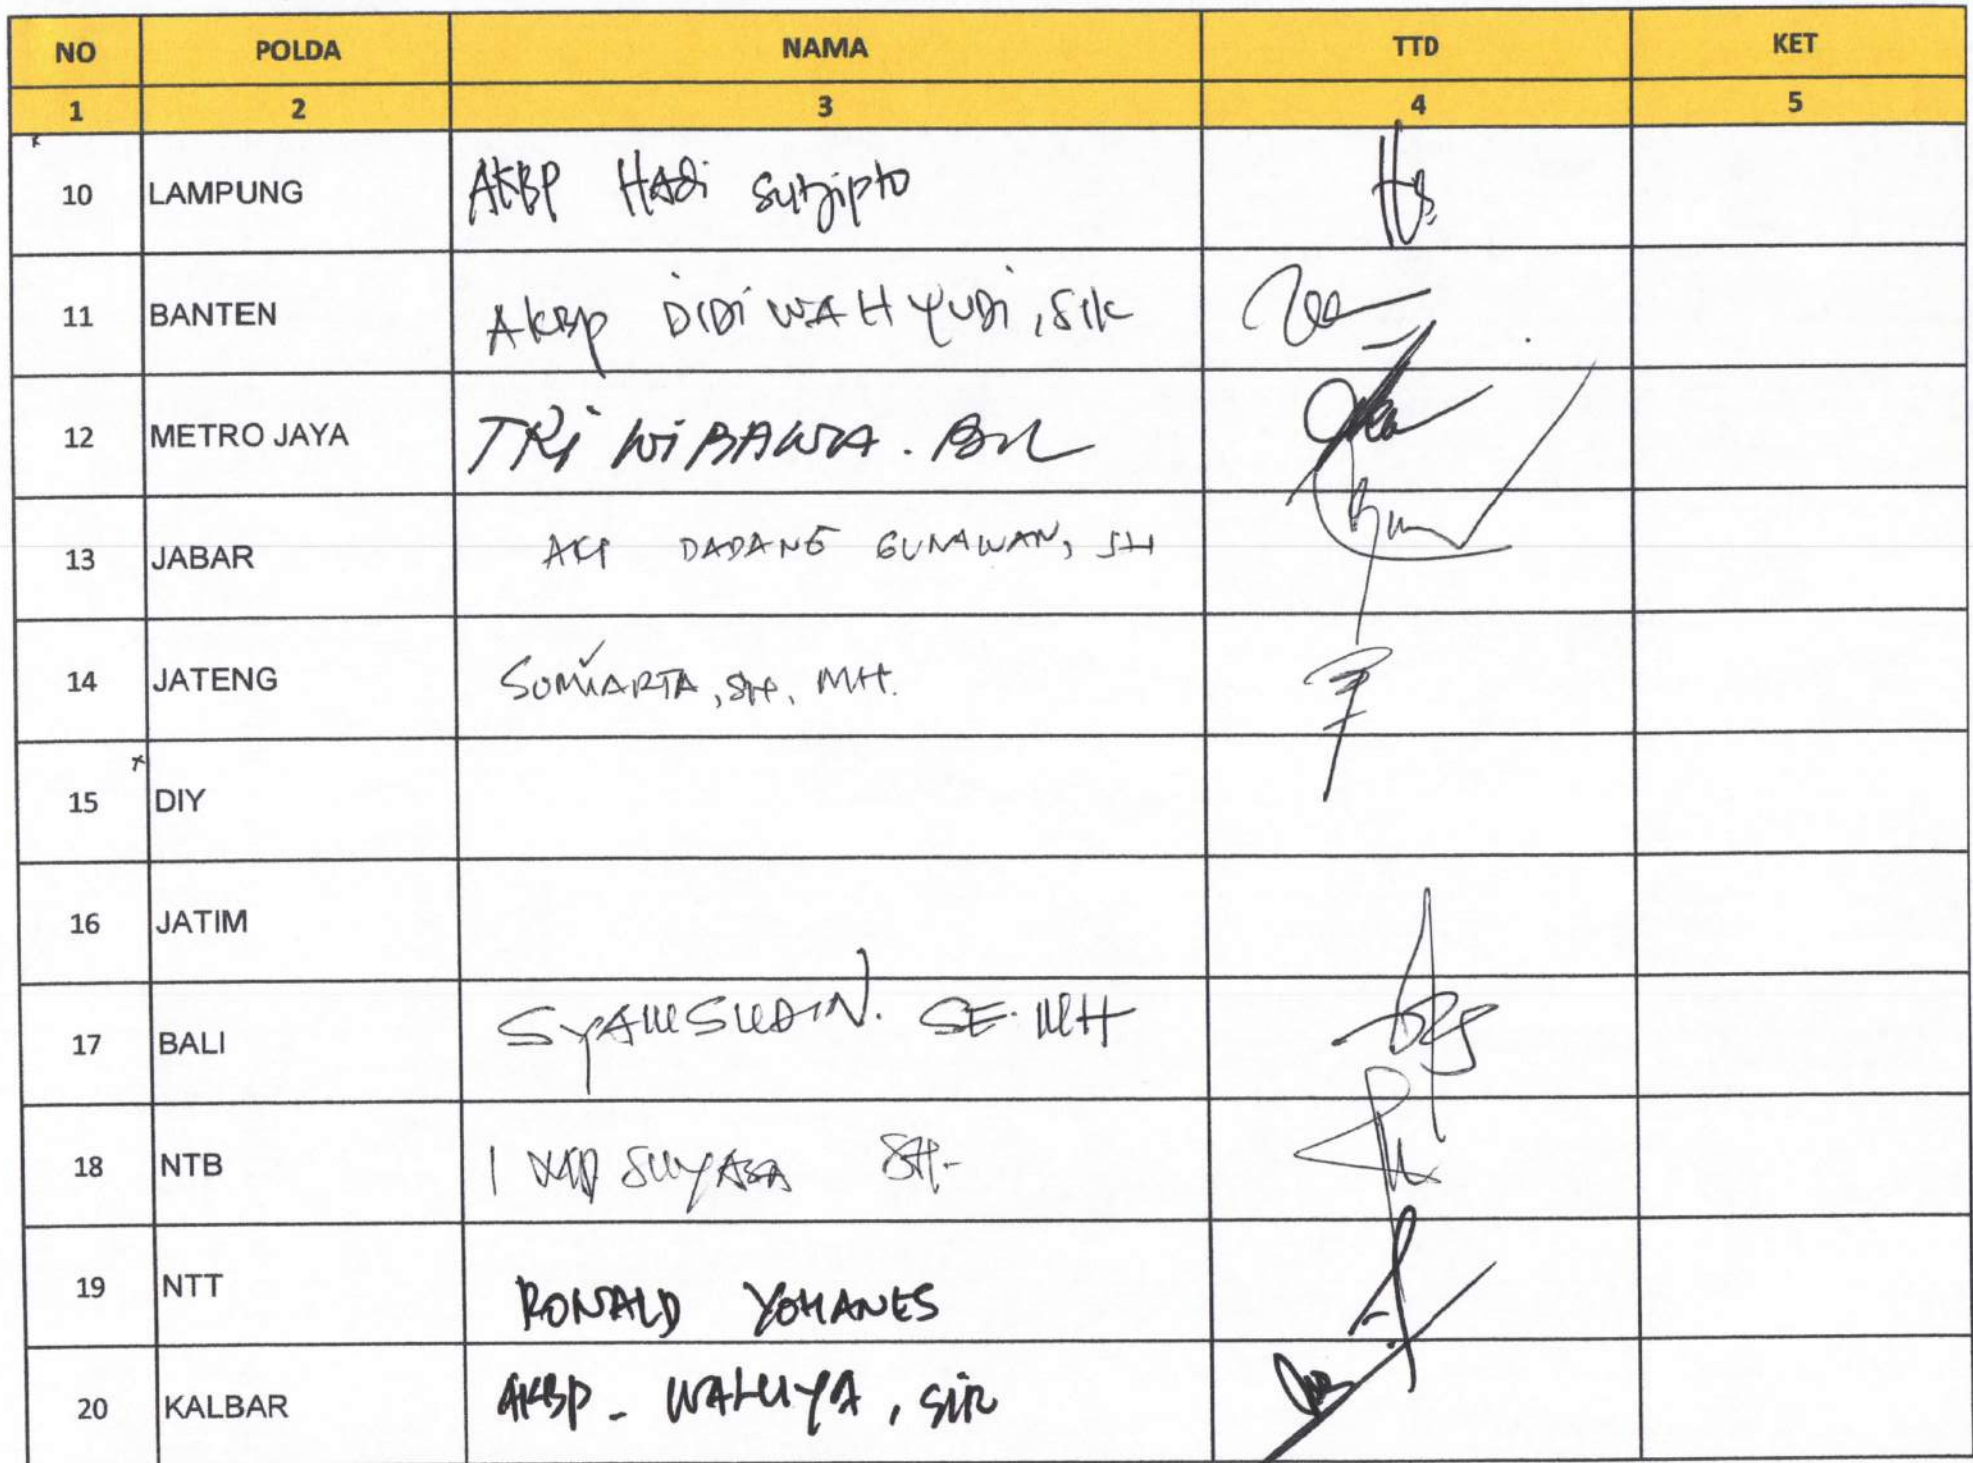 NO POLDA NAMA TTD KET
1 2 3 4 5
10 LAMPUNG AKBP HADi Sutjipto
11 BANTEN AKBP DiDi WAHYUDi, SIK
12 METRO JAYA TRi WiBAWA.
13 JABAR AKP DADANG GUNAWAN, SH
14 JATENG SUMIARTA, SH, MH.
15 DIY
16 JATIM
17 BALI SYAMSUDIN. SE. MH
18 NTB I SUYASA SH.
19 NTT RONALD YOHANES
20 KALBAR AKBP - WALUYA, SIK